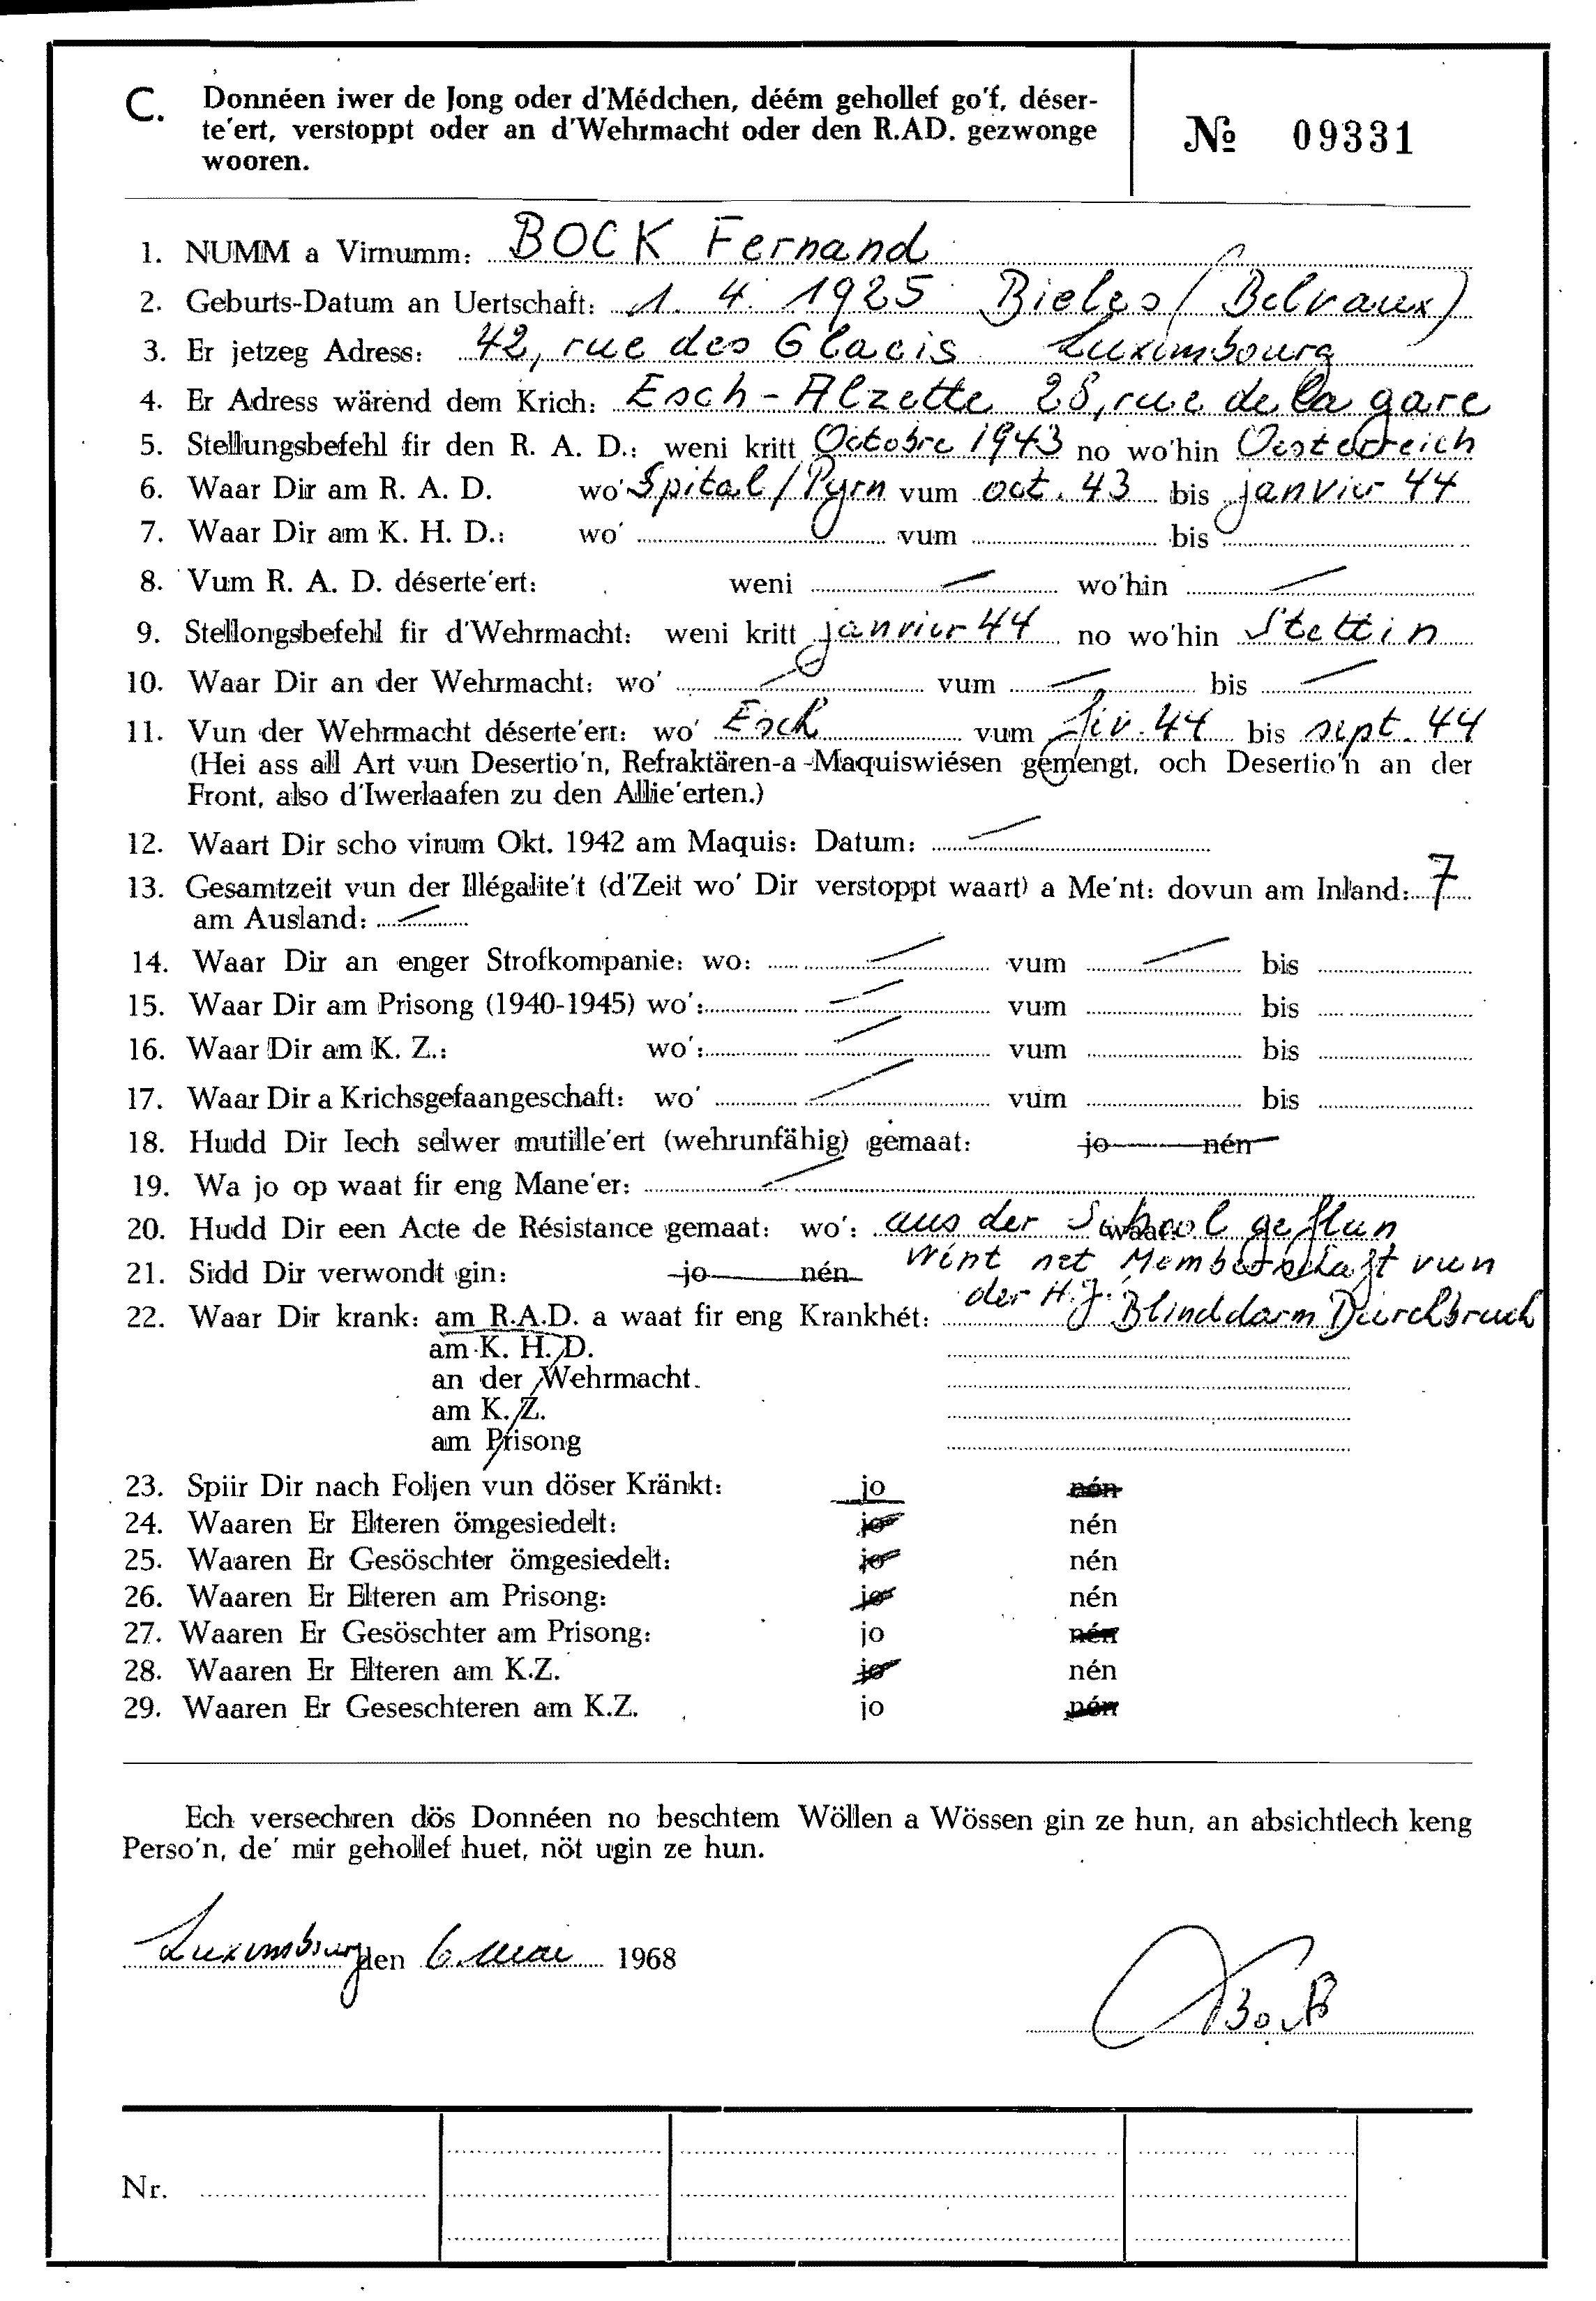 C. Donnéen iwer de Jong oder d'Médchen, déém gehollef go'f, déser-
te'ert, verstoppt oder an d'Wehrmacht oder den R.AD. gezwonge
wooren.
№ 09331
1. NUMM a Virnumm: BOCK Fernand
2. Geburts-Datum an Uertschaft: 1. 4. 1925 Bieles (Belvaux)
3. Er jetzeg Adress: 42, rue des Glacis Luxembourg
4. Er Adress wärend dem Krich: Esch-Alzette 28, rue de la gare
5. Stellungsbefehl fir den R. A. D.: weni kritt Octobre 1943 no wo'hin Oesterreich
6. Waar Dir am R. A. D. wo' Spital/Pyrn vum oct. 43 bis janvier 44
7. Waar Dir am K. H. D.: wo' vum bis
8. Vum R. A. D. déserte'ert: weni — wo'hin —
9. Stellongsbefehl fir d'Wehrmacht: weni kritt janvier 44 no wo'hin Stettin
10. Waar Dir an der Wehrmacht: wo' — vum — bis —
11. Vun der Wehrmacht déserte'ert: wo' Esch vum fév. 44 bis sept. 44
(Hei ass all Art vun Desertio'n, Refraktären-a-Maquiswiésen gemengt, och Desertio'n an der
Front, also d'Iwerlaafen zu den Allie'erten.)
12. Waart Dir scho virum Okt. 1942 am Maquis: Datum: —
13. Gesamtzeit vun der Illégalite't (d'Zeit wo' Dir verstoppt waart) a Me'nt: dovun am Inland: 7
am Ausland: —
14. Waar Dir an enger Strofkompanie: wo: — vum — bis
15. Waar Dir am Prisong (1940-1945) wo': — vum bis
16. Waar Dir am K. Z.: wo': — vum bis
17. Waar Dir a Krichsgefaangeschaft: wo' — vum bis
18. Hudd Dir Iech selwer mutille'ert (wehrunfähig) gemaat: jo nén
19. Wa jo op waat fir eng Mane'er: —
20. Hudd Dir een Acte de Résistance gemaat: wo': aus der School geflun
21. Sidd Dir verwondt gin: jo nén wént net Memberschaft vun
der H.J.
22. Waar Dir krank: am R.A.D. a waat fir eng Krankhét: Blinddarm Durchbruch
am K. H. D.
an der Wehrmacht.
am K. Z.
am Prisong
23. Spiir Dir nach Foljen vun döser Kränkt: jo nén
24. Waaren Er Elteren ömgesiedelt: jo nén
25. Waaren Er Gesöschter ömgesiedelt: jo nén
26. Waaren Er Elteren am Prisong: jo nén
27. Waaren Er Gesöschter am Prisong: jo nén
28. Waaren Er Elteren am K.Z. jo nén
29. Waaren Er Geseschteren am K.Z. jo nén
Ech versechren dös Donnéen no beschtem Wöllen a Wössen gin ze hun, an absichtlech keng
Perso'n, de' mir gehollef huet, nöt ugin ze hun.
Luxemburg den 6. Mai 1968
Bock
Nr.